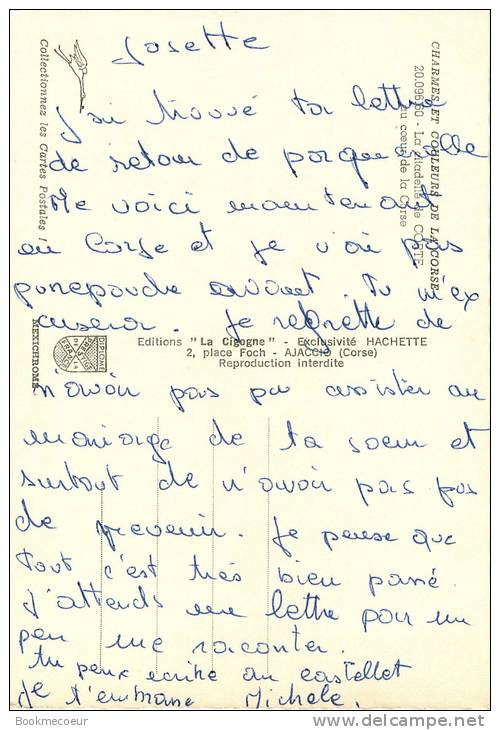 Josette
J'ai trouvé ta lettre
de retour de porquerolle
Me voici maintenant
en Corse et je n'ai pas
pu repondre avant. Tu m'ex
cuseras. Je regrette de
n'avoir pas pu assister au
mariage de ta soeur et
surtout de n'avoir pas pu
de prevenir. Je pense que
tout c'est très bien passé.
J'attends une lettre pour un
peu me raconter.
tu peux ecrire au castellet
Je t'embrasse Michele.
CHARMES ET COULEURS DE LA CORSE
20.096.60 - La Citadelle de CORTE
au cœur de la Corse
Collectionnez les Cartes Postales !
Editions "La Cigogne" - Exclusivité HACHETTE
2, place Foch - AJACCIO (Corse)
Reproduction interdite
DIPLOME
PRESTIGE
DE LA
FRANCE
MEXICHROME
Bookmecoeur
www.delcampe.net